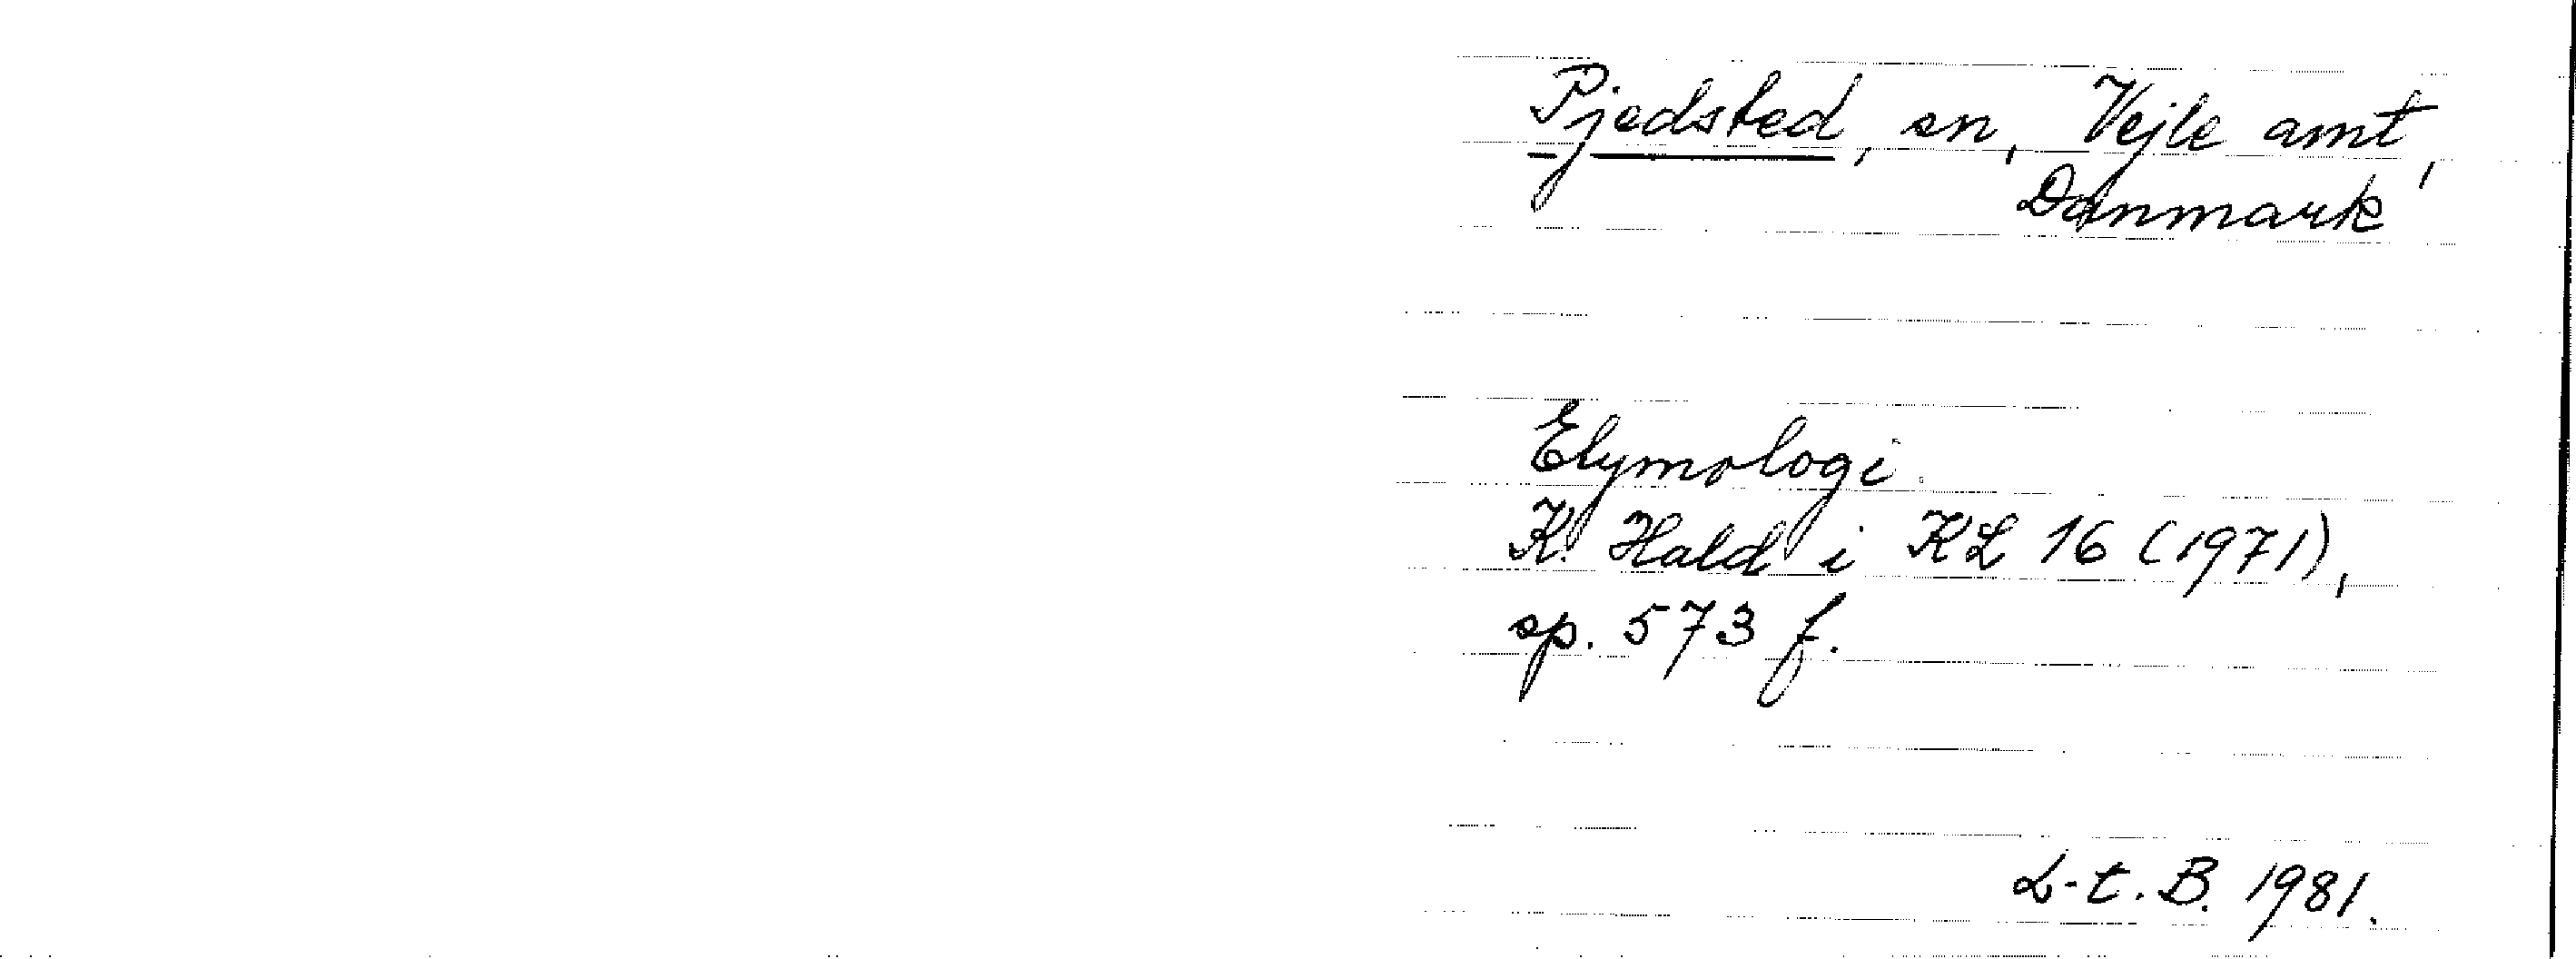 Pjedsted, sn, Vejle amt,
Danmark
Etymologi.
K. Hald i KL 16 (1971),
sp. 573 f.
L-t. B. 1981.